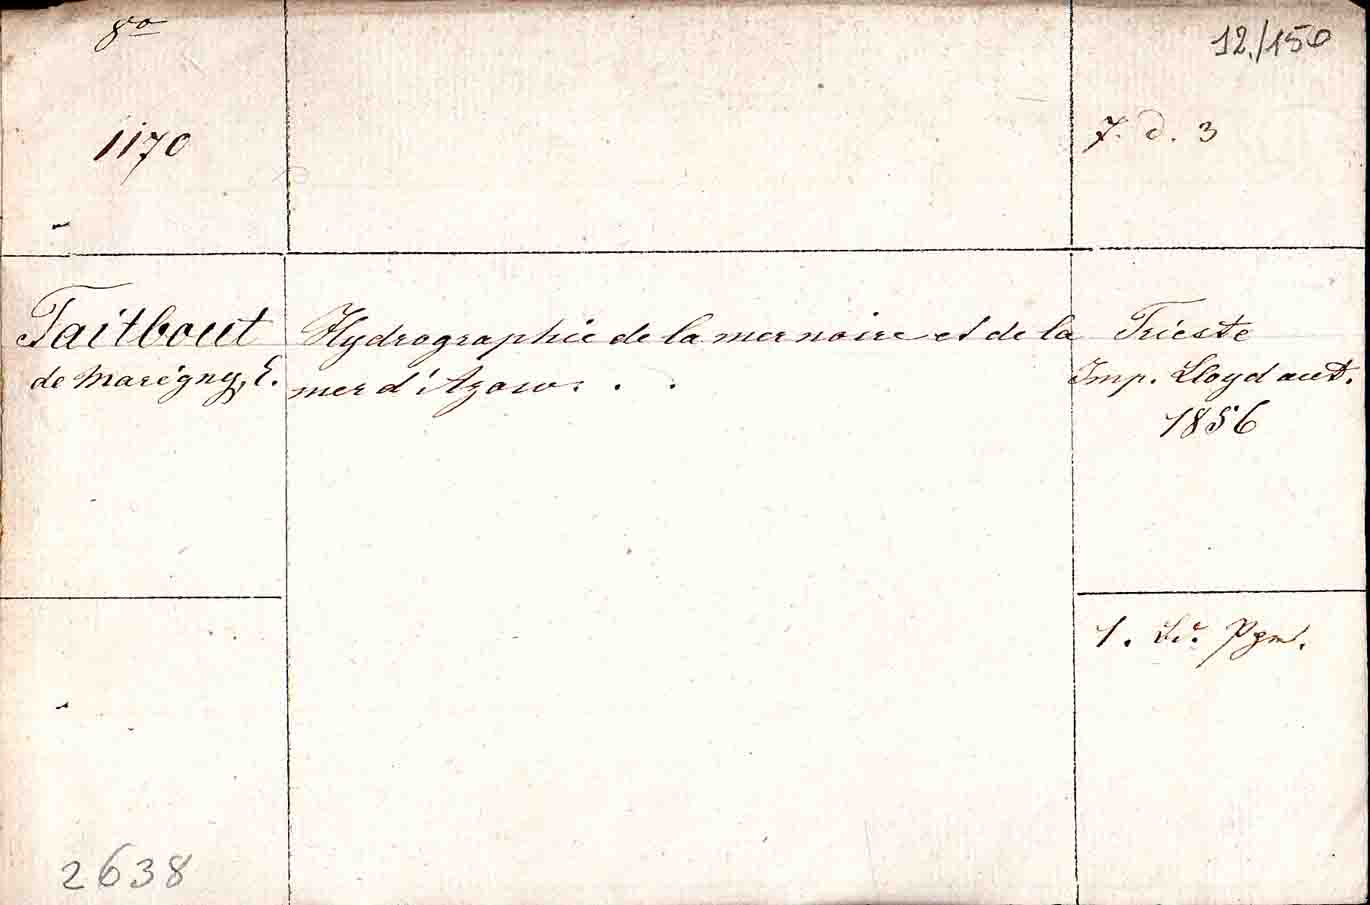 8º
12./156
1170
7. d. 3
Taitbout
de Marigny, E.
Hydrographie de la mer noire et de la
mer d'Azow. . .
Trieste
Imp. Lloyd aust.
1856
1. Pgm.
2638